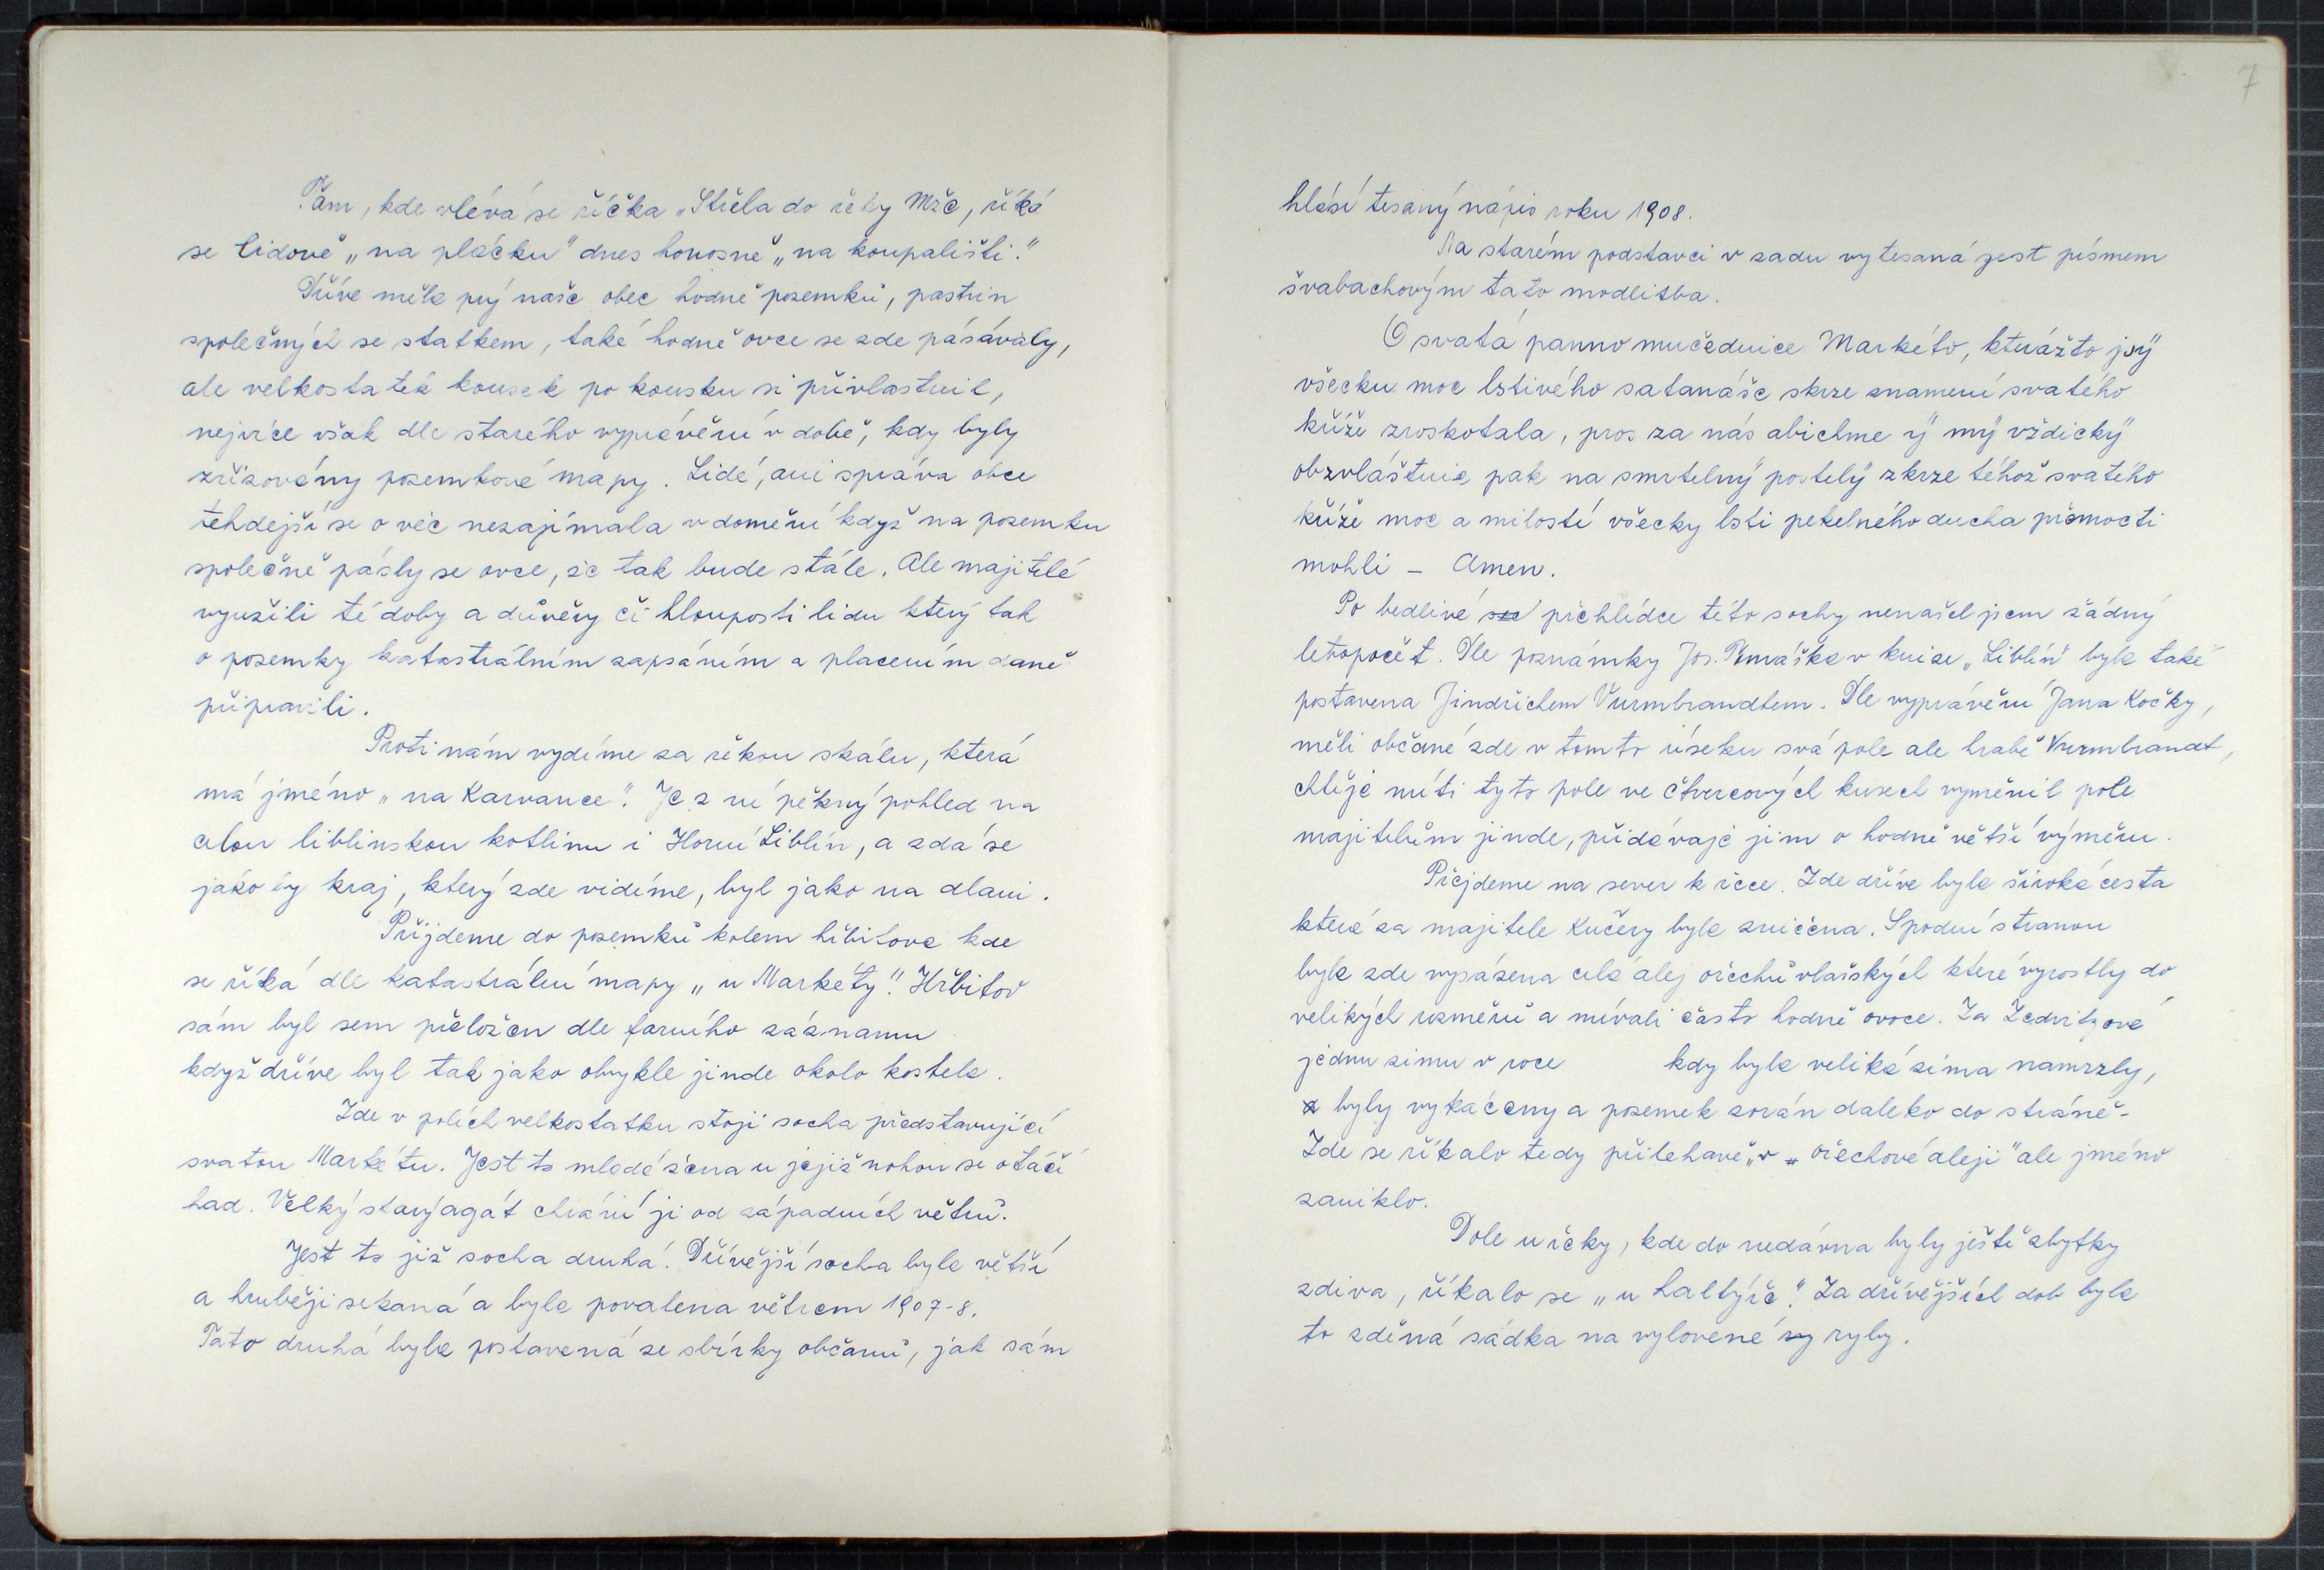 Tam, kde vlévá se říčka „Střela do řeky Mže, říká
se lidově „na plácku" dnes honosně „na koupališti."
Dříve měla prý naše obec hodně pozemků, pastvin
společných se statkem, také hodně ovce se zde pásávaly,
ale velkostatek kousek po kousku si přivlastnil,
nejvíce však dle starého vyprávění v době, kdy byly
zřizovány pozemkové mapy. Lidé, ani správa obce
tehdejší se o věc nezajímala v domění když na pozemku
společně pásly se ovce, že tak bude stále. Ale majitelé
využili té doby a důvěry či hlouposti lidu který tak
o pozemky katastrálním zapsáním a placením daně
připravili.
Proti nám vydíme za řekou skálu, která
má jméno „na Karvance". Je z ní pěkný pohled na
celou liblínskou kotlinu i Horní Liblín, a zdá se
jako by kraj, který zde vidíme, byl jako na dlani.
Přijdeme do pozemků kolem hřbitova kde
se říká dle katastrální mapy „u Markéty". Hřbitov
sám byl sem přeložen dle farního záznamu
když dříve byl tak jako obvykle jinde okolo kostela.
Zde v polích velkostatku stojí socha představující
svatou Markétu. Jest to mladá žena u jejíž nohou se otáčí
had. Velký starý agát chrání ji od západních větrů.
Jest to již socha druhá. Dřívější socha byla větší
a hruběji sekaná a byla povalena větrem 1907-8.
Tato druhá byla postavená ze sbírky občanů, jak sám
7
hlásí tesaný nápis roku 1908.
Na starém podstavci v sadu vytesaná jest písmem
švabachovým tato modlitba.
O svatá panno mučednice Markéto, kterážto jsý
všecku moc lstivého satanáše skrze znamení svatého
kříže zroskotala, pros za nás abichme ý mý vždický
obzvláštnie pak na smrtelný postelý zkrze téhož svatého
kříže moc a milostí všecky lsti pekelného ducha přemocti
mohli – Amen.
Po bedlivé přehlídce této sochy nenašel jsem žádný
letopočet. Dle poznámky Jos. Tomáška v knize „Liblín" byla také
postavena Jindřichem Vurmbrandtem. Dle vyprávění Jana Kočky,
měli občané zde v tomto úseku svá pole ale hrabě Vurmbrandt,
chtěje míti tyto pole ve čtvercových kusech vyměnil pole
majitelům jinde, přidávaje jim o hodně větší výměru.
Přejdeme na sever k řece. Zde dříve byla široká cesta
která za majitele Kučery byla zničena. Spodní stranou
byla zde vysázena celá alej ořechů vlašských které vyrostly do
velikých rozměrů a mívali často hodně ovoce. Za Zedvitzové
jednu zimu v roce kdy byla veliká zima namrzly,
byly vykáceny a pozemek zorán daleko do stráně-
Zde se říkalo tedy přiléhavě „v „ ořechové aleji" ale jméno
zaniklo.
Dole u řeky, kde do nedávna byly ještě zbytky
zdiva, říkalo se „u haltýře". Za dřívějších dob byla
to zděná sádka na vylovené vy ryby.